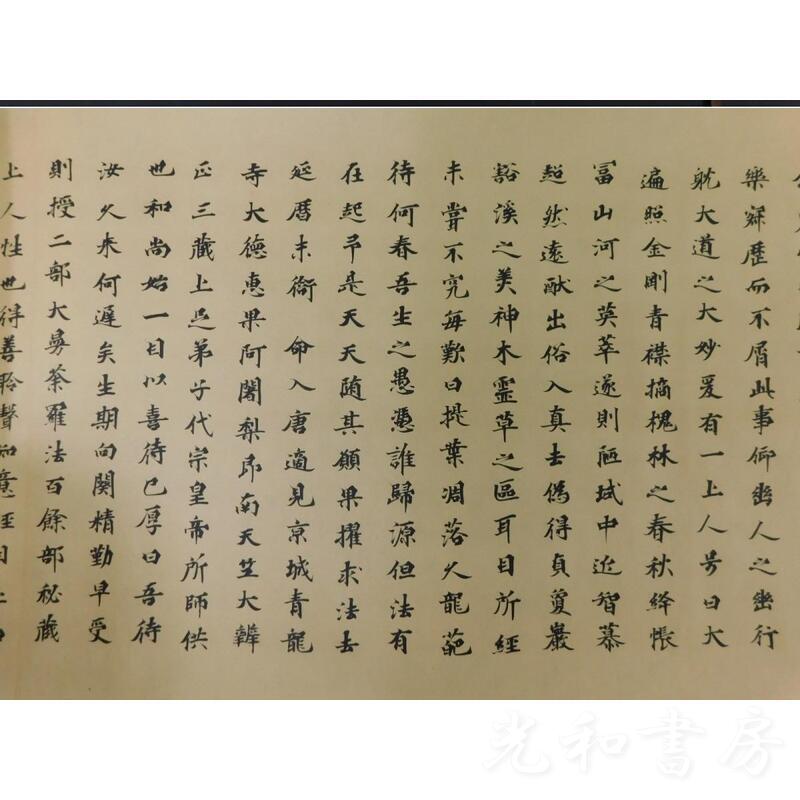 樂寂歷而不屑此事仰幽人之幽行
躭大道之大妙爰有一上人号曰大
遍照金剛青襟摘槐林之春秋絳帳
冨山河之英萃遂則陋域中近智慕
超然遠猷出俗入真去偽得貞夐巖
豁溪之美神木靈草之區耳目所經
未甞不究每歎曰提葉凋落久龍葩
待何春吾生之愚憑誰歸源但法有
在起予是天天随其願果擢求法去
延曆末銜 命入唐適見京城青龍
寺大德惠果阿闍梨即南天竺大辯
正三藏上足弟子代宗皇帝所師供
也和尚始一目以喜待已厚曰吾待
汝久来何遲矣生期向闋精勤早受
則授二部大曼荼羅法百餘部秘藏
上人性也得善聆聲知意經目止口
光和書房